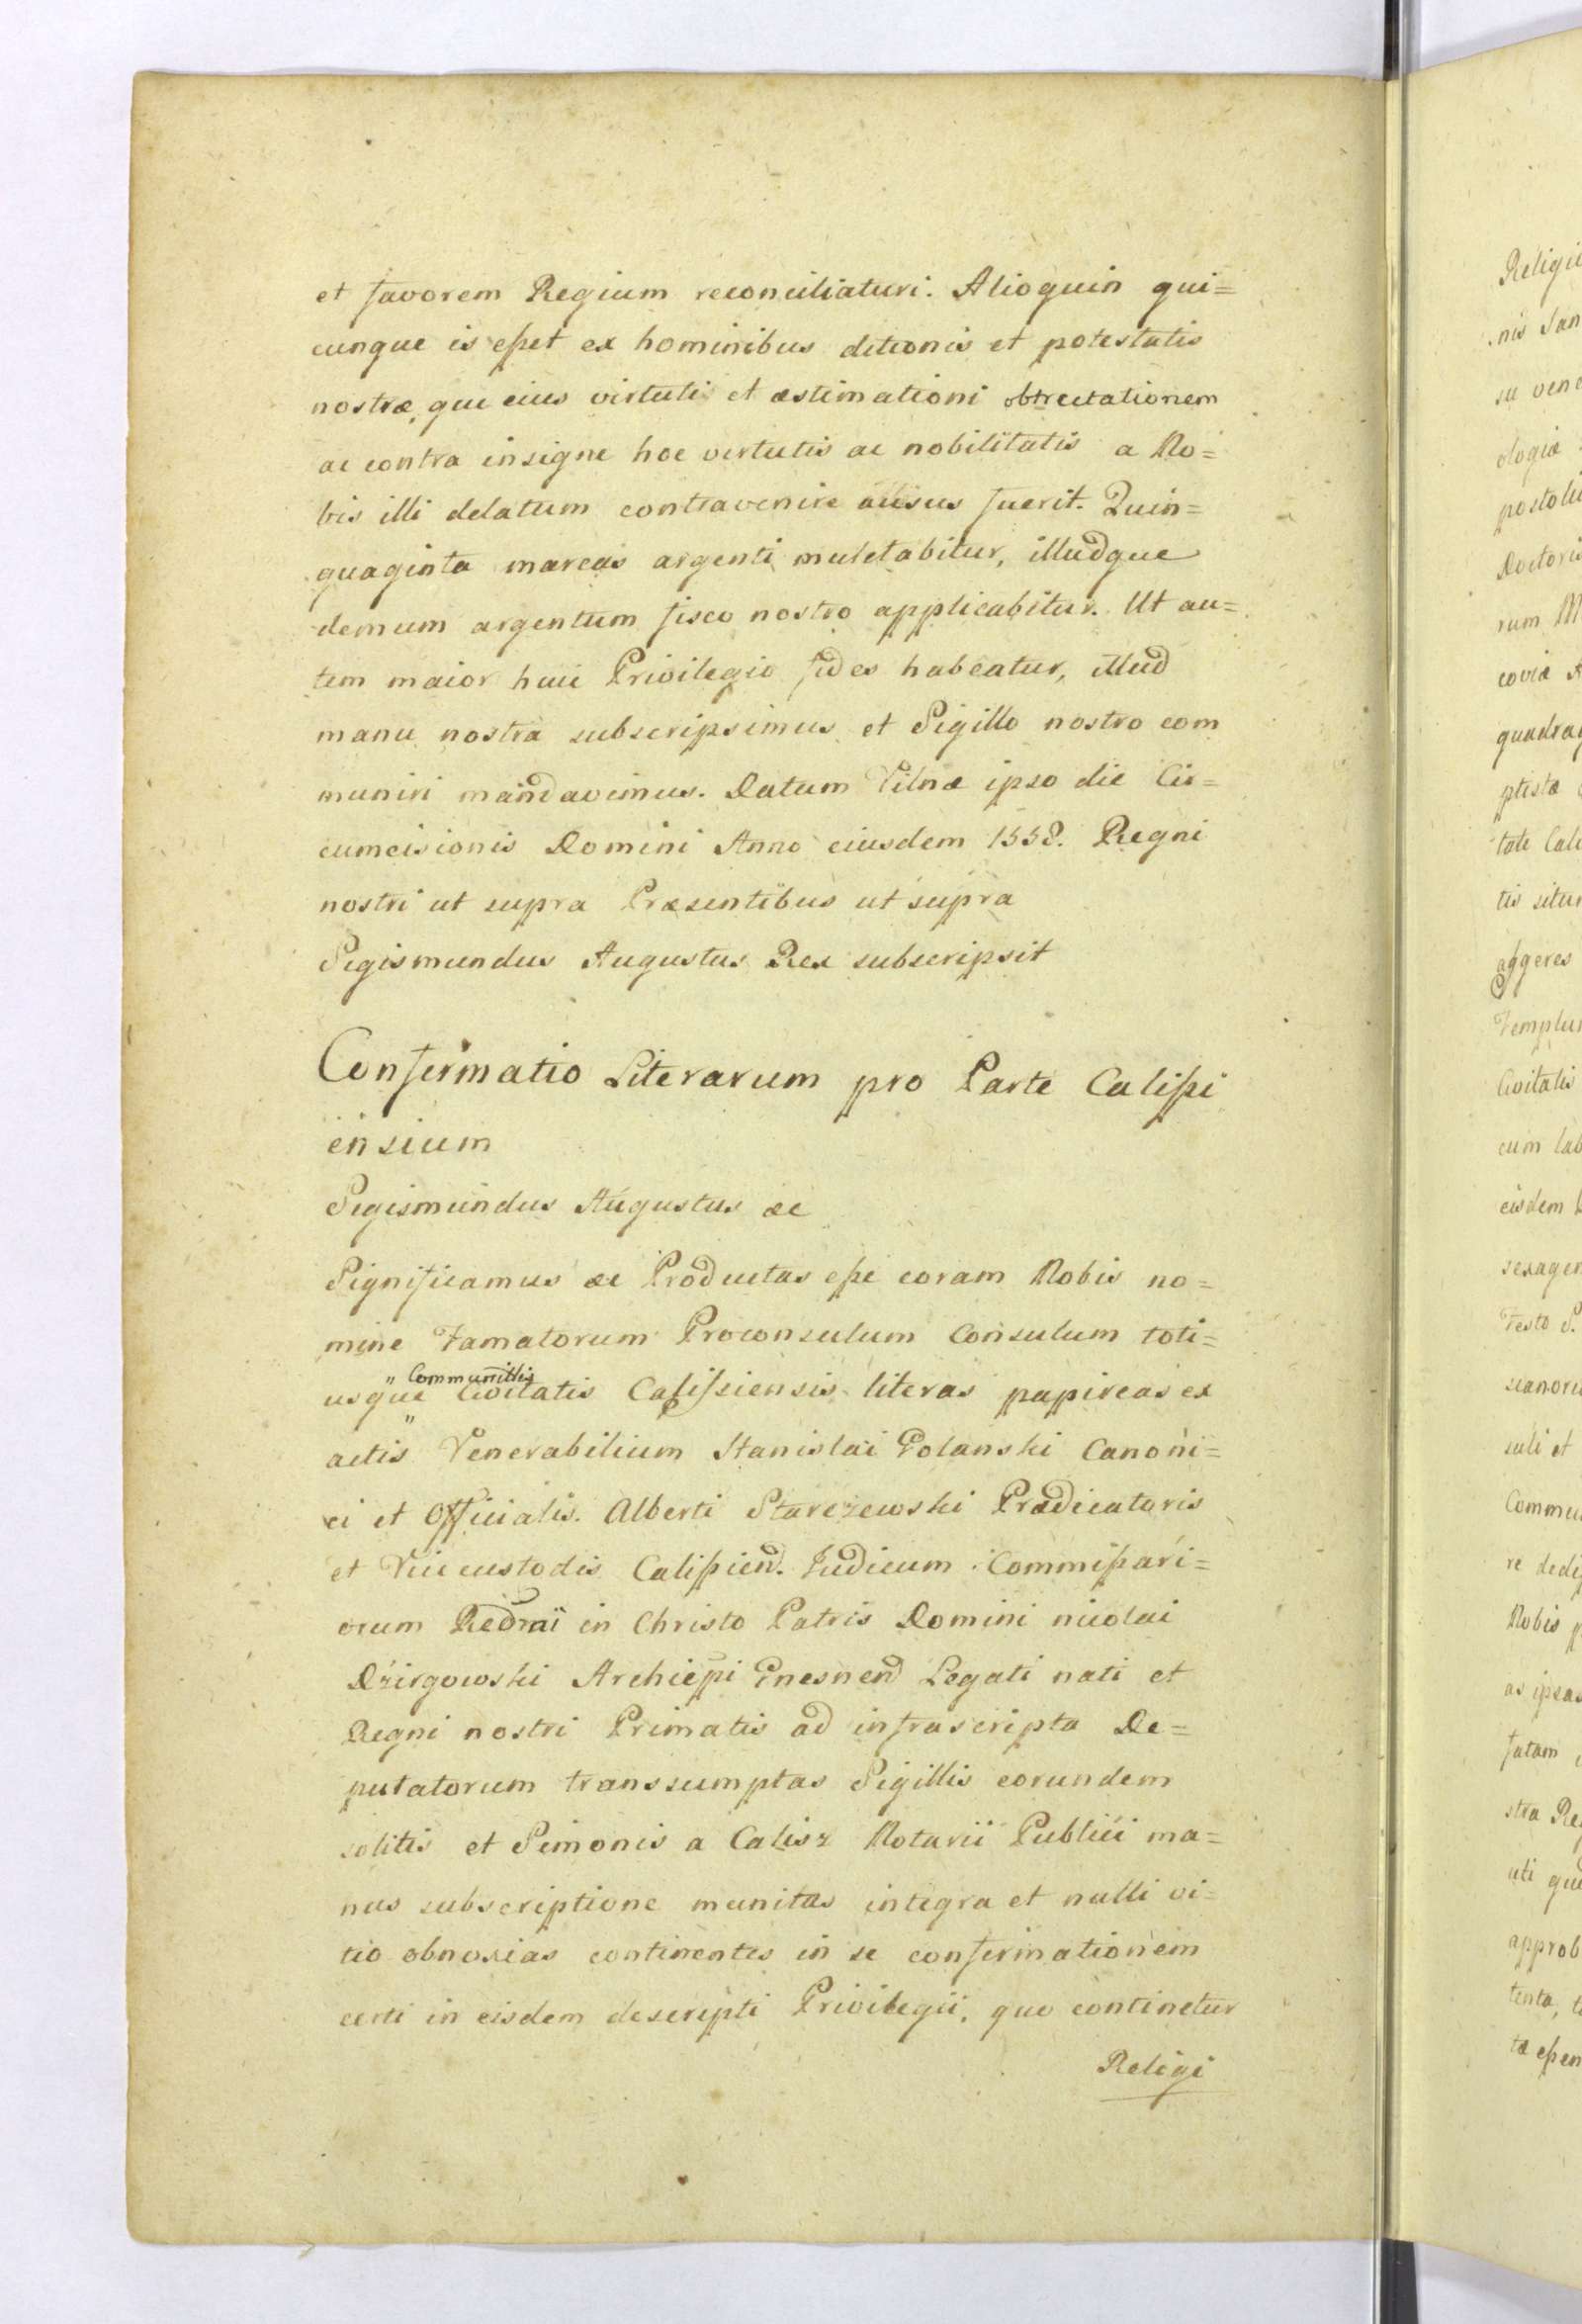 et favorem Regium reconciliaturi. Alioquin qui=
cunque is eßet ex hominibus ditionis et potestatis
nostræ, qui eius virtuti et æstimationi obtrectationem
ac contra insigne hoc virtutis ac nobilitatis a No=
bis illi delatum contravenire ausus fuerit. Quin=
quaginta marcas argenti mulctabitur, illudque
demum argentum fisco nostro applicabitur. Ut au=
tem maior huic Privilegio fides habeatur, illud
manu nostra subscripsimus et Sigillo nostro com
muniri mandavimus. Datum Vilnæ ipso die Cir=
cumcisionis Domini Anno eiusdem 1558. Regni
nostri ut supra Præsentibus ut supra
Sigismundus Augustus Rex subscripsit
Confirmatio Literarum pro Parte Calißi
ensium
Sigismundus Augustus ac
Significamus ac Productas eße coram Nobis no=
mine Famatorum Proconsulum Consulum toti=
usque " Communitatis Civitatis Calißiensis literas papireas ex
actis Venerabilium Stanislai Polanski Canoni=
ci et Officialis. Alberti Starczewski Prædicatoris
et Vicecustodis Calißien̄. Judicum Commißari=
orum Redm̄i in Christo Patris Domini nicolai
Dzirgowski Archiep̄i Gnesnen̄ Legati nati et
Regni nostri Primatis ad infrascripta De=
putatorum transsumptas Sigillis eorundem
solitis et Simonis a Calisz Notarii Publici ma=
nus subscriptione munitas integra et nulli vi=
tio obnoxias continentes in se confirmationem
certi in eisdem descripti Privilegii, quo continetur
Religi
Religi
nis San
su vene
ologiæ
postoli
Doctoris
rum M
coviæ
quadrag
ptistæ
tate Cali
tis situ
aggeres
Templu
Civitatis
cum lab
eisdem
sexagen
Festo S.
sianoru
suli et
Commu
re dediß
Nobis p
as ipsas
fatam
stra Re
uti qu
approb
tenta,
tæ eßen